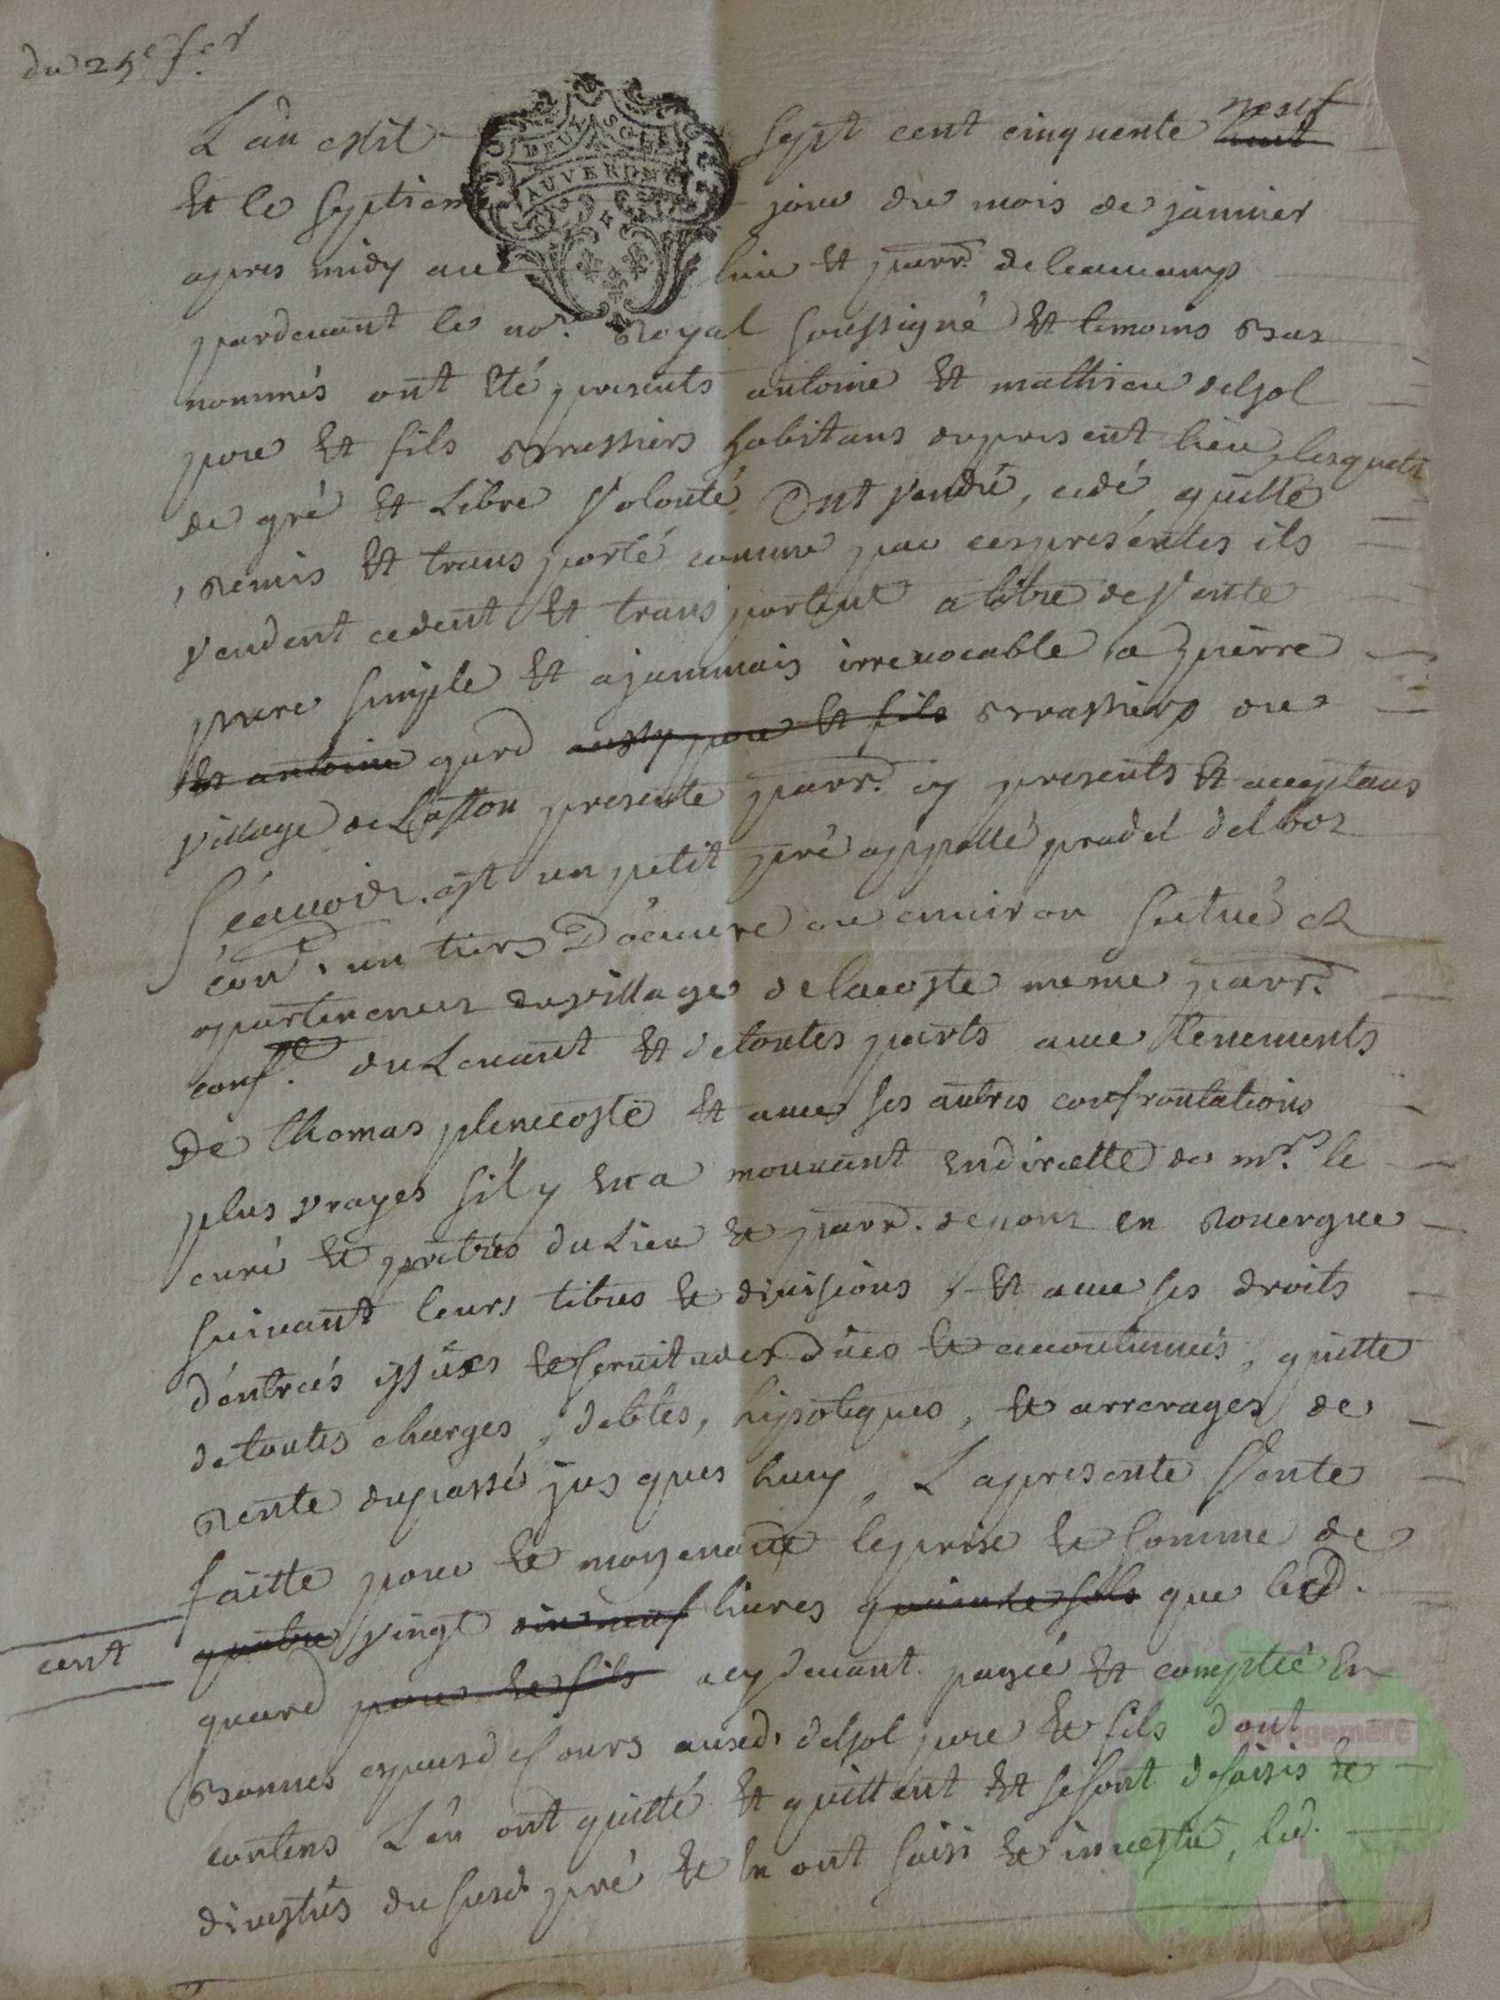 du 25e fer
L'an mil sept cent cinquente neuf huit
DEUX SOLS
AUVERGNE
Et le septieme jour du mois de janvier
apres midy au lieu et parr. de leaucamp
pardevant le nore. Royal soussigné Et temoins Bas
nommés ont été presents antoine Et mathieu delsol
pere Et fils Brassiers habitans du present lieu, lesquels
de gré Et Libre Volonté, Ont vendu, cedé, quitté
remis Et transporté comme par ces presentes ils
vendent cedent Et transportent a titre de Vente
pure simple Et a jammais irrevocable a pierre
Et antoine gard aussy pere Et fils Brassiers du
village de Laston presente parr. cy presents Et acceptans
Sçauoir. est un petit pré appellé pradel delbos
cont. un tiers D'œuvre ou environ situé Et
apartenences du village de lacoste meme parr.
conf. du Levant Et de toutes parts avec tenements
De thomas plenecoste Et avec ses autres confrontations
plus vrayes s'il y en a mouvant en directte de mrs. le
curé Et pretres du Lieu Et parr. de en Rouergue
suivant leurs titres Et divisions, Et avec ses droits
d'entrées issües Et servitudes Dües Et accoutumés, quitte
de toutes charges, debtes, hipoteques, Et arrerages de
rente du passé jusques huy, La presente Vente
faitte pour Et moyenant le prix Et somme de
cent quatre vingt dix neuf livres quinze sols que led.
guard pere Et fils a cy devant payée Et comptée En
Bonnes especes de cours ausd. delsol pere Et fils dont
contens L'en ont quitté Et quittent Et se sont desaisis Et
divestûs du susd. pré Et En ont saisi Et investû, led.
geneagemere